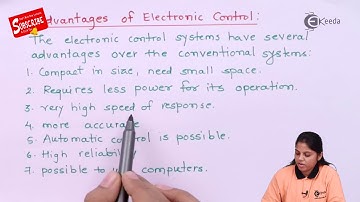 SUBSCRIBE
Advantages of Electronic Control:
Ekeeda
The electronic control systems have several
advantages over the conventional systems:
1. Compact in size, need small space.
2. Requires less power for its operation.
3. very high speed of response.
4. more accurate
5. Automatic control is possible.
6. High reliability
7. possible to computers.